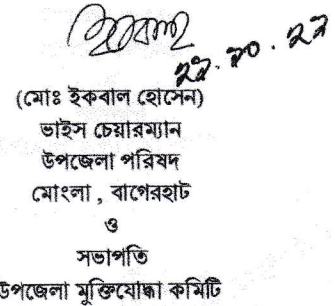 ২২.১০.২২
(মোঃ ইকবাল হোসেন)
ভাইস চেয়ারম্যান
উপজেলা পরিষদ
মোংলা , বাগেরহাট
ও
সভাপতি
উপজেলা মুক্তিযোদ্ধা কমিটি